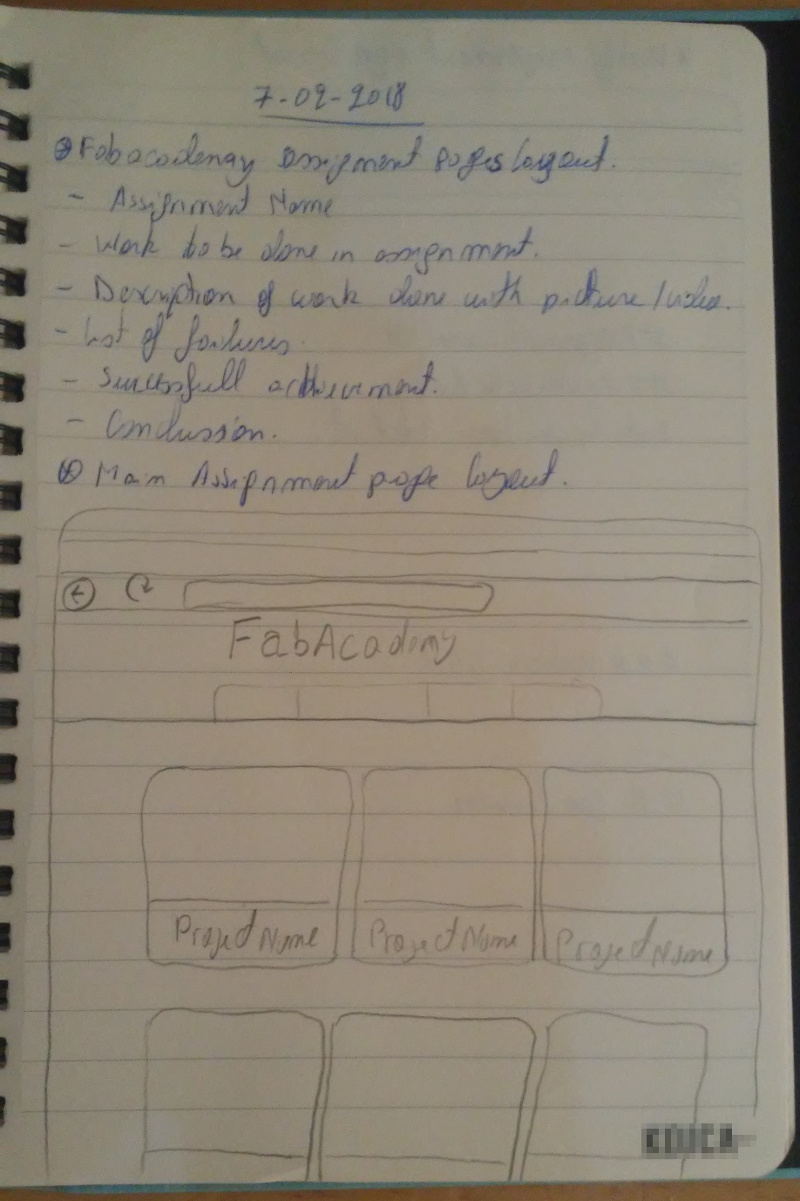 7-02-2018
Fabacademay Assigment pages layout.
- Assignment Name
- Work to be done in assignment.
- Description of work done with picture / video.
- List of failures.
- Successfull achievement.
- Conclussion.
Main Assignment page layout.
FabAcademy
Project Name Project Name Project Name